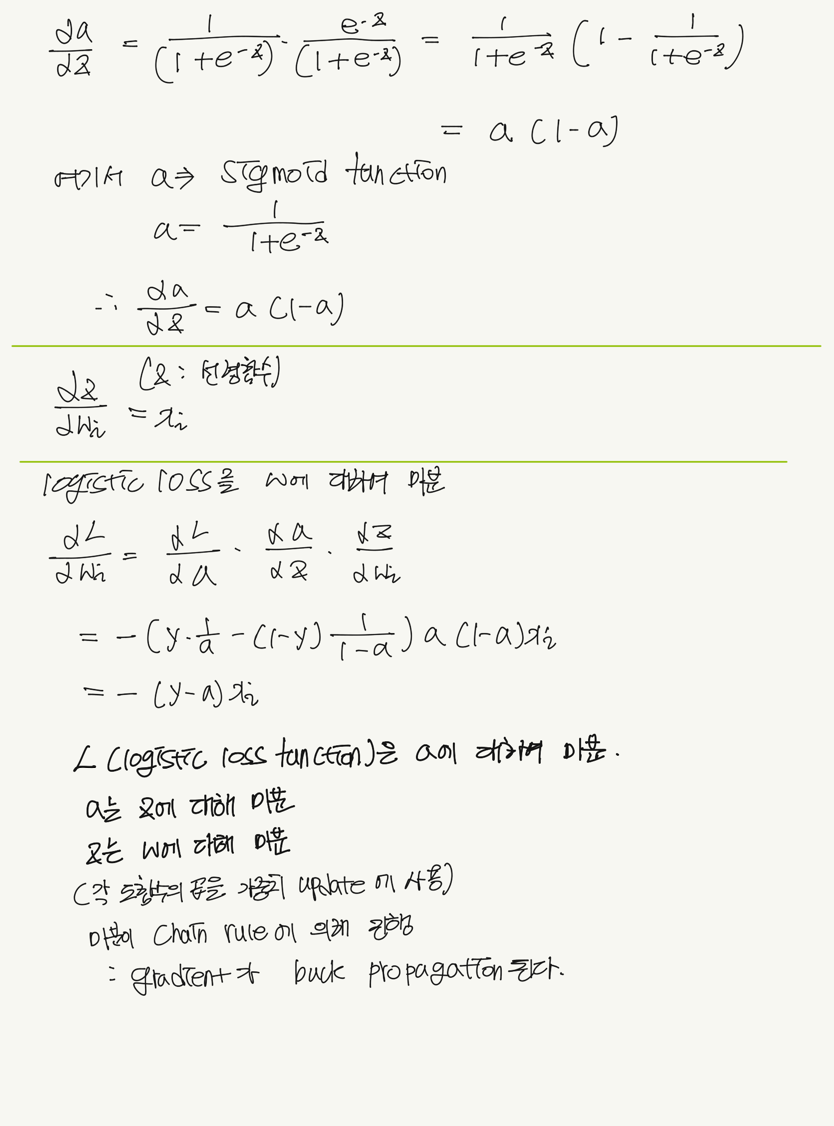 da/dz = 1/(1+e^-z) · e^-z/(1+e^-z) = 1/(1+e^-z) (1 - 1/(1+e^-z))
= a(1-a)
여기서 a⇒ sigmoid function
a = 1/(1+e^-z)
∴ da/dz = a(1-a)
(z : 선형함수)
dz/dwᵢ = xᵢ
logistic loss를 w에 대하여 미분
dL/dwᵢ = dL/da · da/dz · dz/dwᵢ
= -(y·1/a - (1-y) 1/(1-a)) a(1-a)xᵢ
= -(y-a)xᵢ
L (logistic loss function)은 a에 대하여 미분.
a는 z에 대해 미분
z는 w에 대해 미분
(각 도함수의 곱을 가중치 update에 사용)
미분이 chain rule에 의해 진행
: gradient가 back propagation된다.